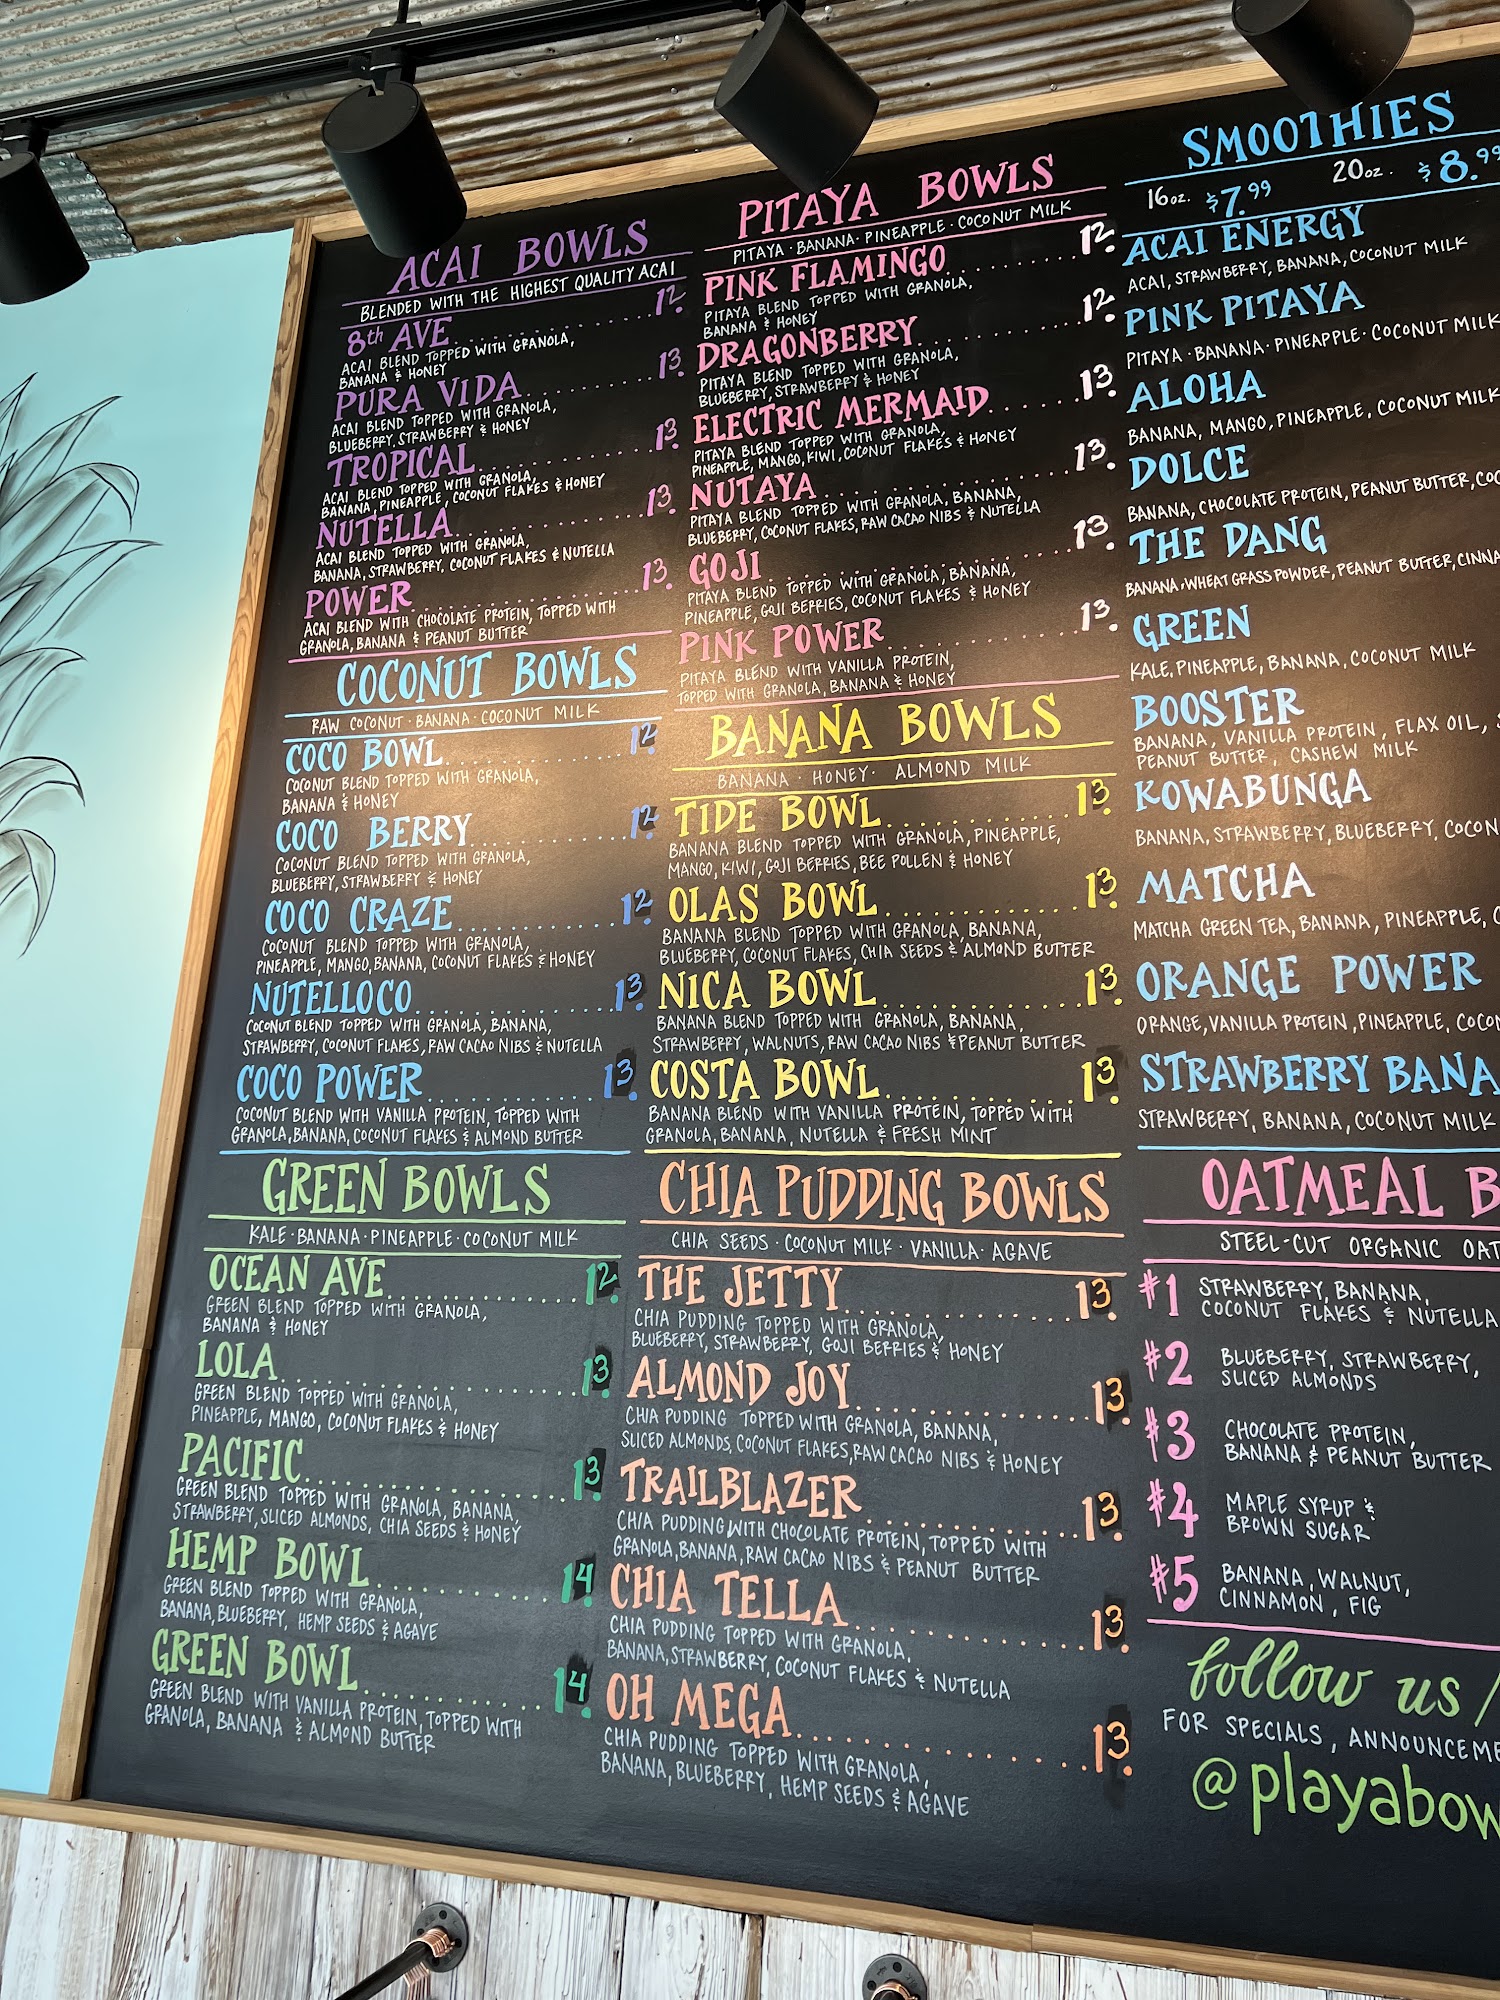 ACAI BOWLS
BLENDED WITH THE HIGHEST QUALITY ACAI
8th AVE 12.
ACAI BLEND TOPPED WITH GRANOLA,
BANANA & HONEY
PURA VIDA 13.
ACAI BLEND TOPPED WITH GRANOLA,
BLUEBERRY, STRAWBERRY & HONEY
TROPICAL 13.
ACAI BLEND TOPPED WITH GRANOLA,
BANANA, PINEAPPLE, COCONUT FLAKES & HONEY
NUTELLA 13.
ACAI BLEND TOPPED WITH GRANOLA,
BANANA, STRAWBERRY, COCONUT FLAKES & NUTELLA
POWER 13.
ACAI BLEND WITH CHOCOLATE PROTEIN, TOPPED WITH
GRANOLA, BANANA & PEANUT BUTTER
COCONUT BOWLS
RAW COCONUT · BANANA · COCONUT MILK
COCO BOWL 12
COCONUT BLEND TOPPED WITH GRANOLA,
BANANA & HONEY
COCO BERRY 12
COCONUT BLEND TOPPED WITH GRANOLA,
BLUEBERRY, STRAWBERRY & HONEY
COCO CRAZE 12
COCONUT BLEND TOPPED WITH GRANOLA,
PINEAPPLE, MANGO, BANANA, COCONUT FLAKES & HONEY
NUTELLOCO 13
COCONUT BLEND TOPPED WITH GRANOLA, BANANA,
STRAWBERRY, COCONUT FLAKES, RAW CACAO NIBS & NUTELLA
COCO POWER 13
COCONUT BLEND WITH VANILLA PROTEIN, TOPPED WITH
GRANOLA, BANANA, COCONUT FLAKES & ALMOND BUTTER
GREEN BOWLS
KALE · BANANA · PINEAPPLE · COCONUT MILK
OCEAN AVE 12.
GREEN BLEND TOPPED WITH GRANOLA,
BANANA & HONEY
LOLA 13.
GREEN BLEND TOPPED WITH GRANOLA,
PINEAPPLE, MANGO, COCONUT FLAKES & HONEY
PACIFIC 13.
GREEN BLEND TOPPED WITH GRANOLA, BANANA,
STRAWBERRY, SLICED ALMONDS, CHIA SEEDS & HONEY
HEMP BOWL 14.
GREEN BLEND TOPPED WITH GRANOLA,
BANANA, BLUEBERRY, HEMP SEEDS & AGAVE
GREEN BOWL 14.
GREEN BLEND WITH VANILLA PROTEIN, TOPPED WITH
GRANOLA, BANANA & ALMOND BUTTER
PITAYA BOWLS
PITAYA · BANANA · PINEAPPLE · COCONUT MILK
PINK FLAMINGO 12.
PITAYA BLEND TOPPED WITH GRANOLA,
BANANA & HONEY
DRAGONBERRY 12.
PITAYA BLEND TOPPED WITH GRANOLA,
BLUEBERRY, STRAWBERRY & HONEY
ELECTRIC MERMAID 13.
PITAYA BLEND TOPPED WITH GRANOLA,
PINEAPPLE, MANGO, KIWI, COCONUT FLAKES & HONEY
NUTAYA 13.
PITAYA BLEND TOPPED WITH GRANOLA, BANANA,
BLUEBERRY, COCONUT FLAKES, RAW CACAO NIBS & NUTELLA
GOJI 13.
PITAYA BLEND TOPPED WITH GRANOLA, BANANA,
PINEAPPLE, GOJI BERRIES, COCONUT FLAKES & HONEY
PINK POWER 13.
PITAYA BLEND WITH VANILLA PROTEIN,
TOPPED WITH GRANOLA, BANANA & HONEY
BANANA BOWLS
BANANA · HONEY · ALMOND MILK
TIDE BOWL 13.
BANANA BLEND TOPPED WITH GRANOLA, PINEAPPLE,
MANGO, KIWI, GOJI BERRIES, BEE POLLEN & HONEY
OLAS BOWL 13.
BANANA BLEND TOPPED WITH GRANOLA, BANANA,
BLUEBERRY, COCONUT FLAKES, CHIA SEEDS & ALMOND BUTTER
NICA BOWL 13.
BANANA BLEND TOPPED WITH GRANOLA, BANANA,
STRAWBERRY, WALNUTS, RAW CACAO NIBS & PEANUT BUTTER
COSTA BOWL 13.
BANANA BLEND WITH VANILLA PROTEIN, TOPPED WITH
GRANOLA, BANANA, NUTELLA & FRESH MINT
CHIA PUDDING BOWLS
CHIA SEEDS · COCONUT MILK · VANILLA · AGAVE
THE JETTY 13.
CHIA PUDDING TOPPED WITH GRANOLA,
BLUEBERRY, STRAWBERRY, GOJI BERRIES & HONEY
ALMOND JOY 13.
CHIA PUDDING TOPPED WITH GRANOLA, BANANA,
SLICED ALMONDS, COCONUT FLAKES, RAW CACAO NIBS & HONEY
TRAILBLAZER 13.
CHIA PUDDING WITH CHOCOLATE PROTEIN, TOPPED WITH
GRANOLA, BANANA, RAW CACAO NIBS & PEANUT BUTTER
CHIA TELLA 13.
CHIA PUDDING TOPPED WITH GRANOLA,
BANANA, STRAWBERRY, COCONUT FLAKES & NUTELLA
OH MEGA 13.
CHIA PUDDING TOPPED WITH GRANOLA,
BANANA, BLUEBERRY, HEMP SEEDS & AGAVE
SMOOTHIES
16oz. $7.99 20oz. $8.99
ACAI ENERGY
ACAI, STRAWBERRY, BANANA, COCONUT MILK
PINK PITAYA
PITAYA · BANANA · PINEAPPLE · COCONUT MILK
ALOHA
BANANA, MANGO, PINEAPPLE, COCONUT MILK
DOLCE
BANANA, CHOCOLATE PROTEIN, PEANUT BUTTER, COC
THE DANG
BANANA, WHEAT GRASS POWDER, PEANUT BUTTER, CINNA
GREEN
KALE, PINEAPPLE, BANANA, COCONUT MILK
BOOSTER
BANANA, VANILLA PROTEIN, FLAX OIL,
PEANUT BUTTER, CASHEW MILK
KOWABUNGA
BANANA, STRAWBERRY, BLUEBERRY, COCON
MATCHA
MATCHA GREEN TEA, BANANA, PINEAPPLE, C
ORANGE POWER
ORANGE, VANILLA PROTEIN, PINEAPPLE, COCON
STRAWBERRY BANA
STRAWBERRY, BANANA, COCONUT MILK
OATMEAL B
STEEL-CUT ORGANIC OAT
#1 STRAWBERRY, BANANA,
COCONUT FLAKES & NUTELLA
#2 BLUEBERRY, STRAWBERRY,
SLICED ALMONDS
#3 CHOCOLATE PROTEIN,
BANANA & PEANUT BUTTER
#4 MAPLE SYRUP &
BROWN SUGAR
#5 BANANA, WALNUT,
CINNAMON, FIG
follow us /
FOR SPECIALS, ANNOUNCEME
@playabow